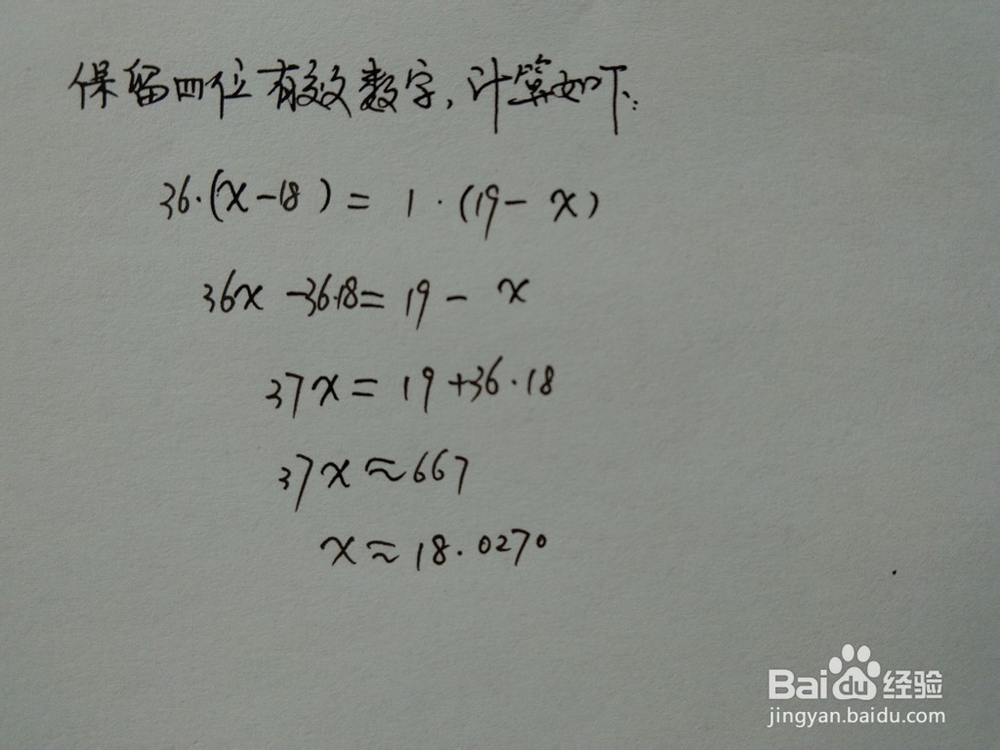 保留四位有效数字,计算如下:
36·(x-18)= 1·(19-x)
36x-36·18=19-x
37x=19+36·18
37x≈667
x≈18.0270
Baidu经验
jingyan.baidu.com